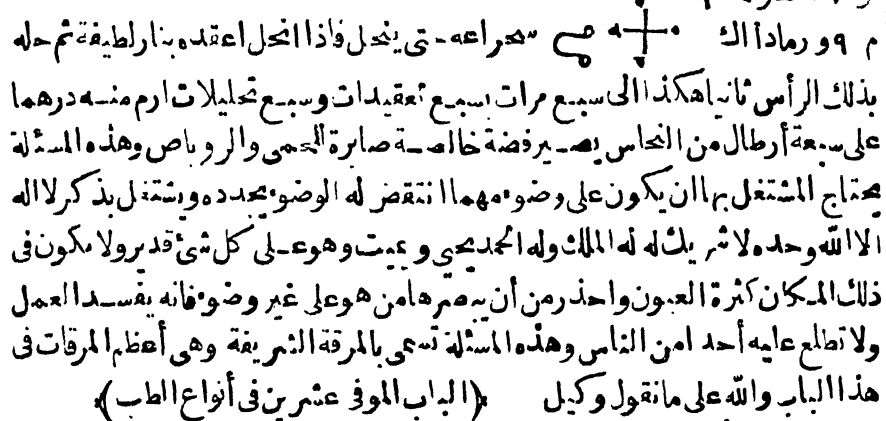 م ٩ و رمادا الك سحراعه حتى ينحل فاذا انحل اعقده بنار لطيفة ثم حله
بذلك الرأس ثانيا هكذا الى سبع مرات بسبع تعقيدات وسبع تحليلات ارم منه درهما
على سبعة أرطال من النحاس يصير فضة خالصة صابرة الحمى والروباص وهذه المسئلة
يحتاج المشتغل بها ان يكون على وضوء مهما انتقض له الوضوء يجدده ويشتغل بذكر لا اله
الا الله وحده لا شريك له له الملك وله الحمد يحيى ويميت وهو على كل شئ قدير ولا يكون فى
ذلك المكان كثرة العيون واحذر من أن يبصرها من هو على غير وضوء فانه يفسد العمل
ولا تطلع عليه أحدا من الناس وهذه المسئلة تسمى بالمرقة الشريفة وهى أعظم المرقات فى
هذا الباب والله على ما نقول وكيل (الباب الموفى عشرين فى أنواع الطب)